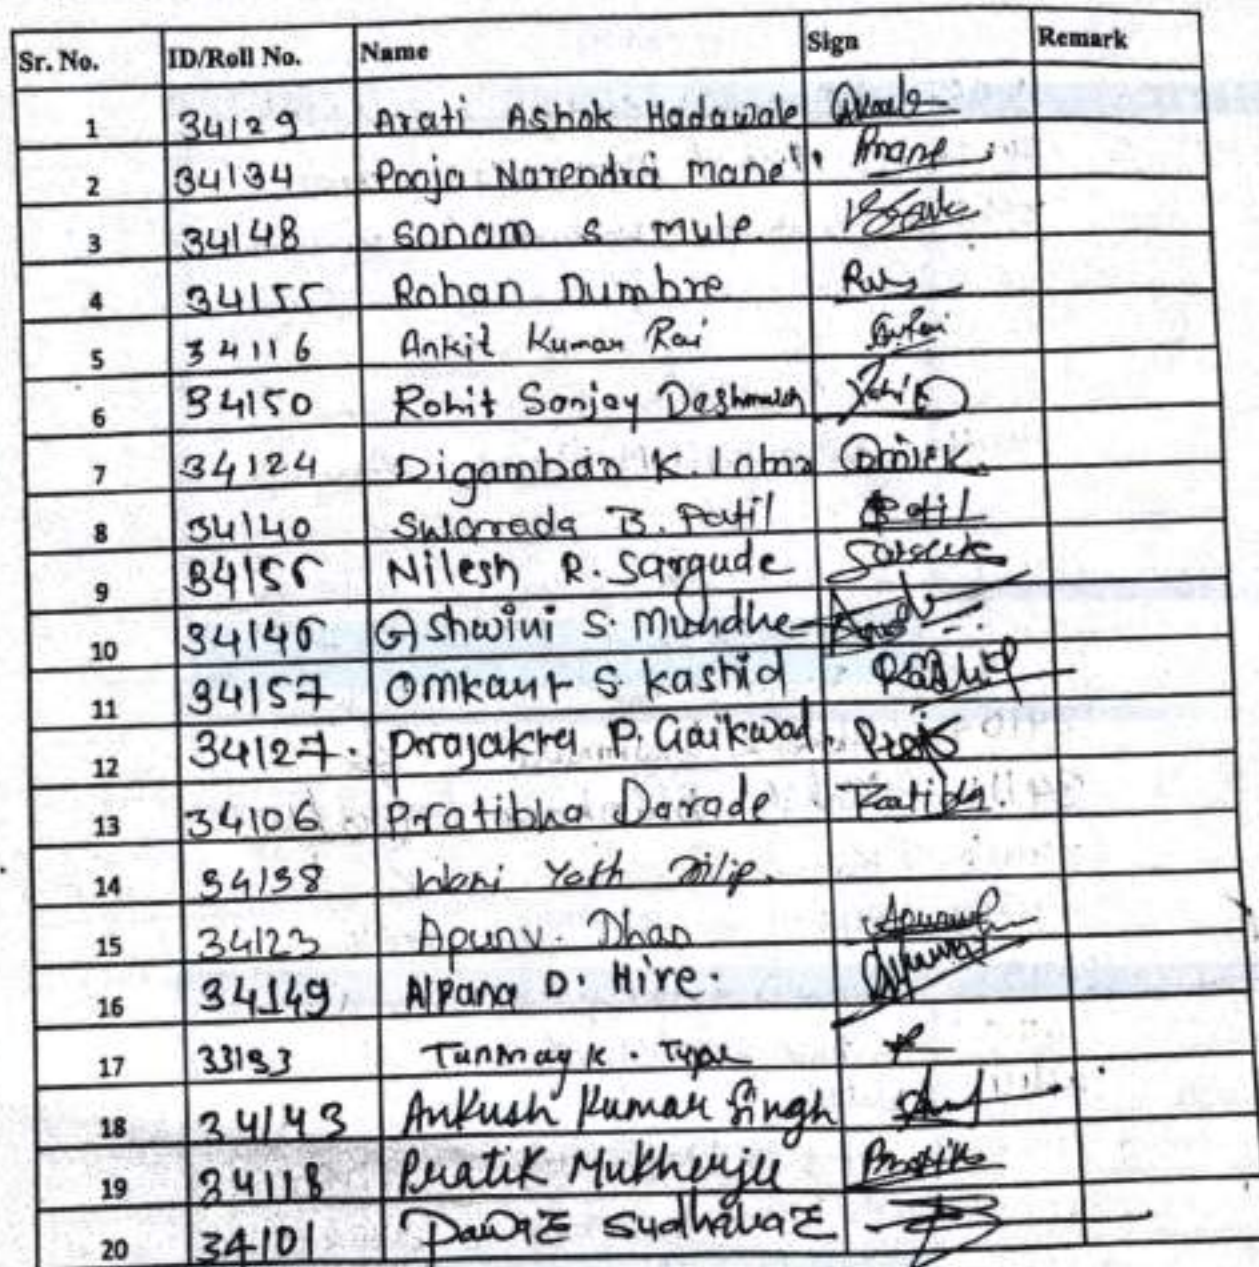 Sr. No. ID/Roll No. Name Sign Remark
1 34129 Arati Ashok Hadawale
2 34134 Pooja Narendra Mane Pmane
3 34148 Sonam S Mule.
4 34155 Rohan Dumbre
5 34116 Ankit Kumar Rai
6 34150 Rohit Sanjay Deshmukh
7 34124 Digambar K.
8 34140 Swarada B. Patil Patil
9 34156 Nilesh R. Sargude
10 34146 Ashwini S. Mundhe
11 34157 Omkaur S. Kashid Kashid
12 34127. Prajakta P. Gaikwad.
13 34106 Pratibha Darade
14 34138 Wani Yash Dilip.
15 34123 Apurv. Dhan
16 34149 Alpana D. Hire.
17 33193 Tanmay K.
18 34143 Ankush Kumar Singh
19 34118 Pratik Mukherjee
20 34101 Pawar Sudhakar